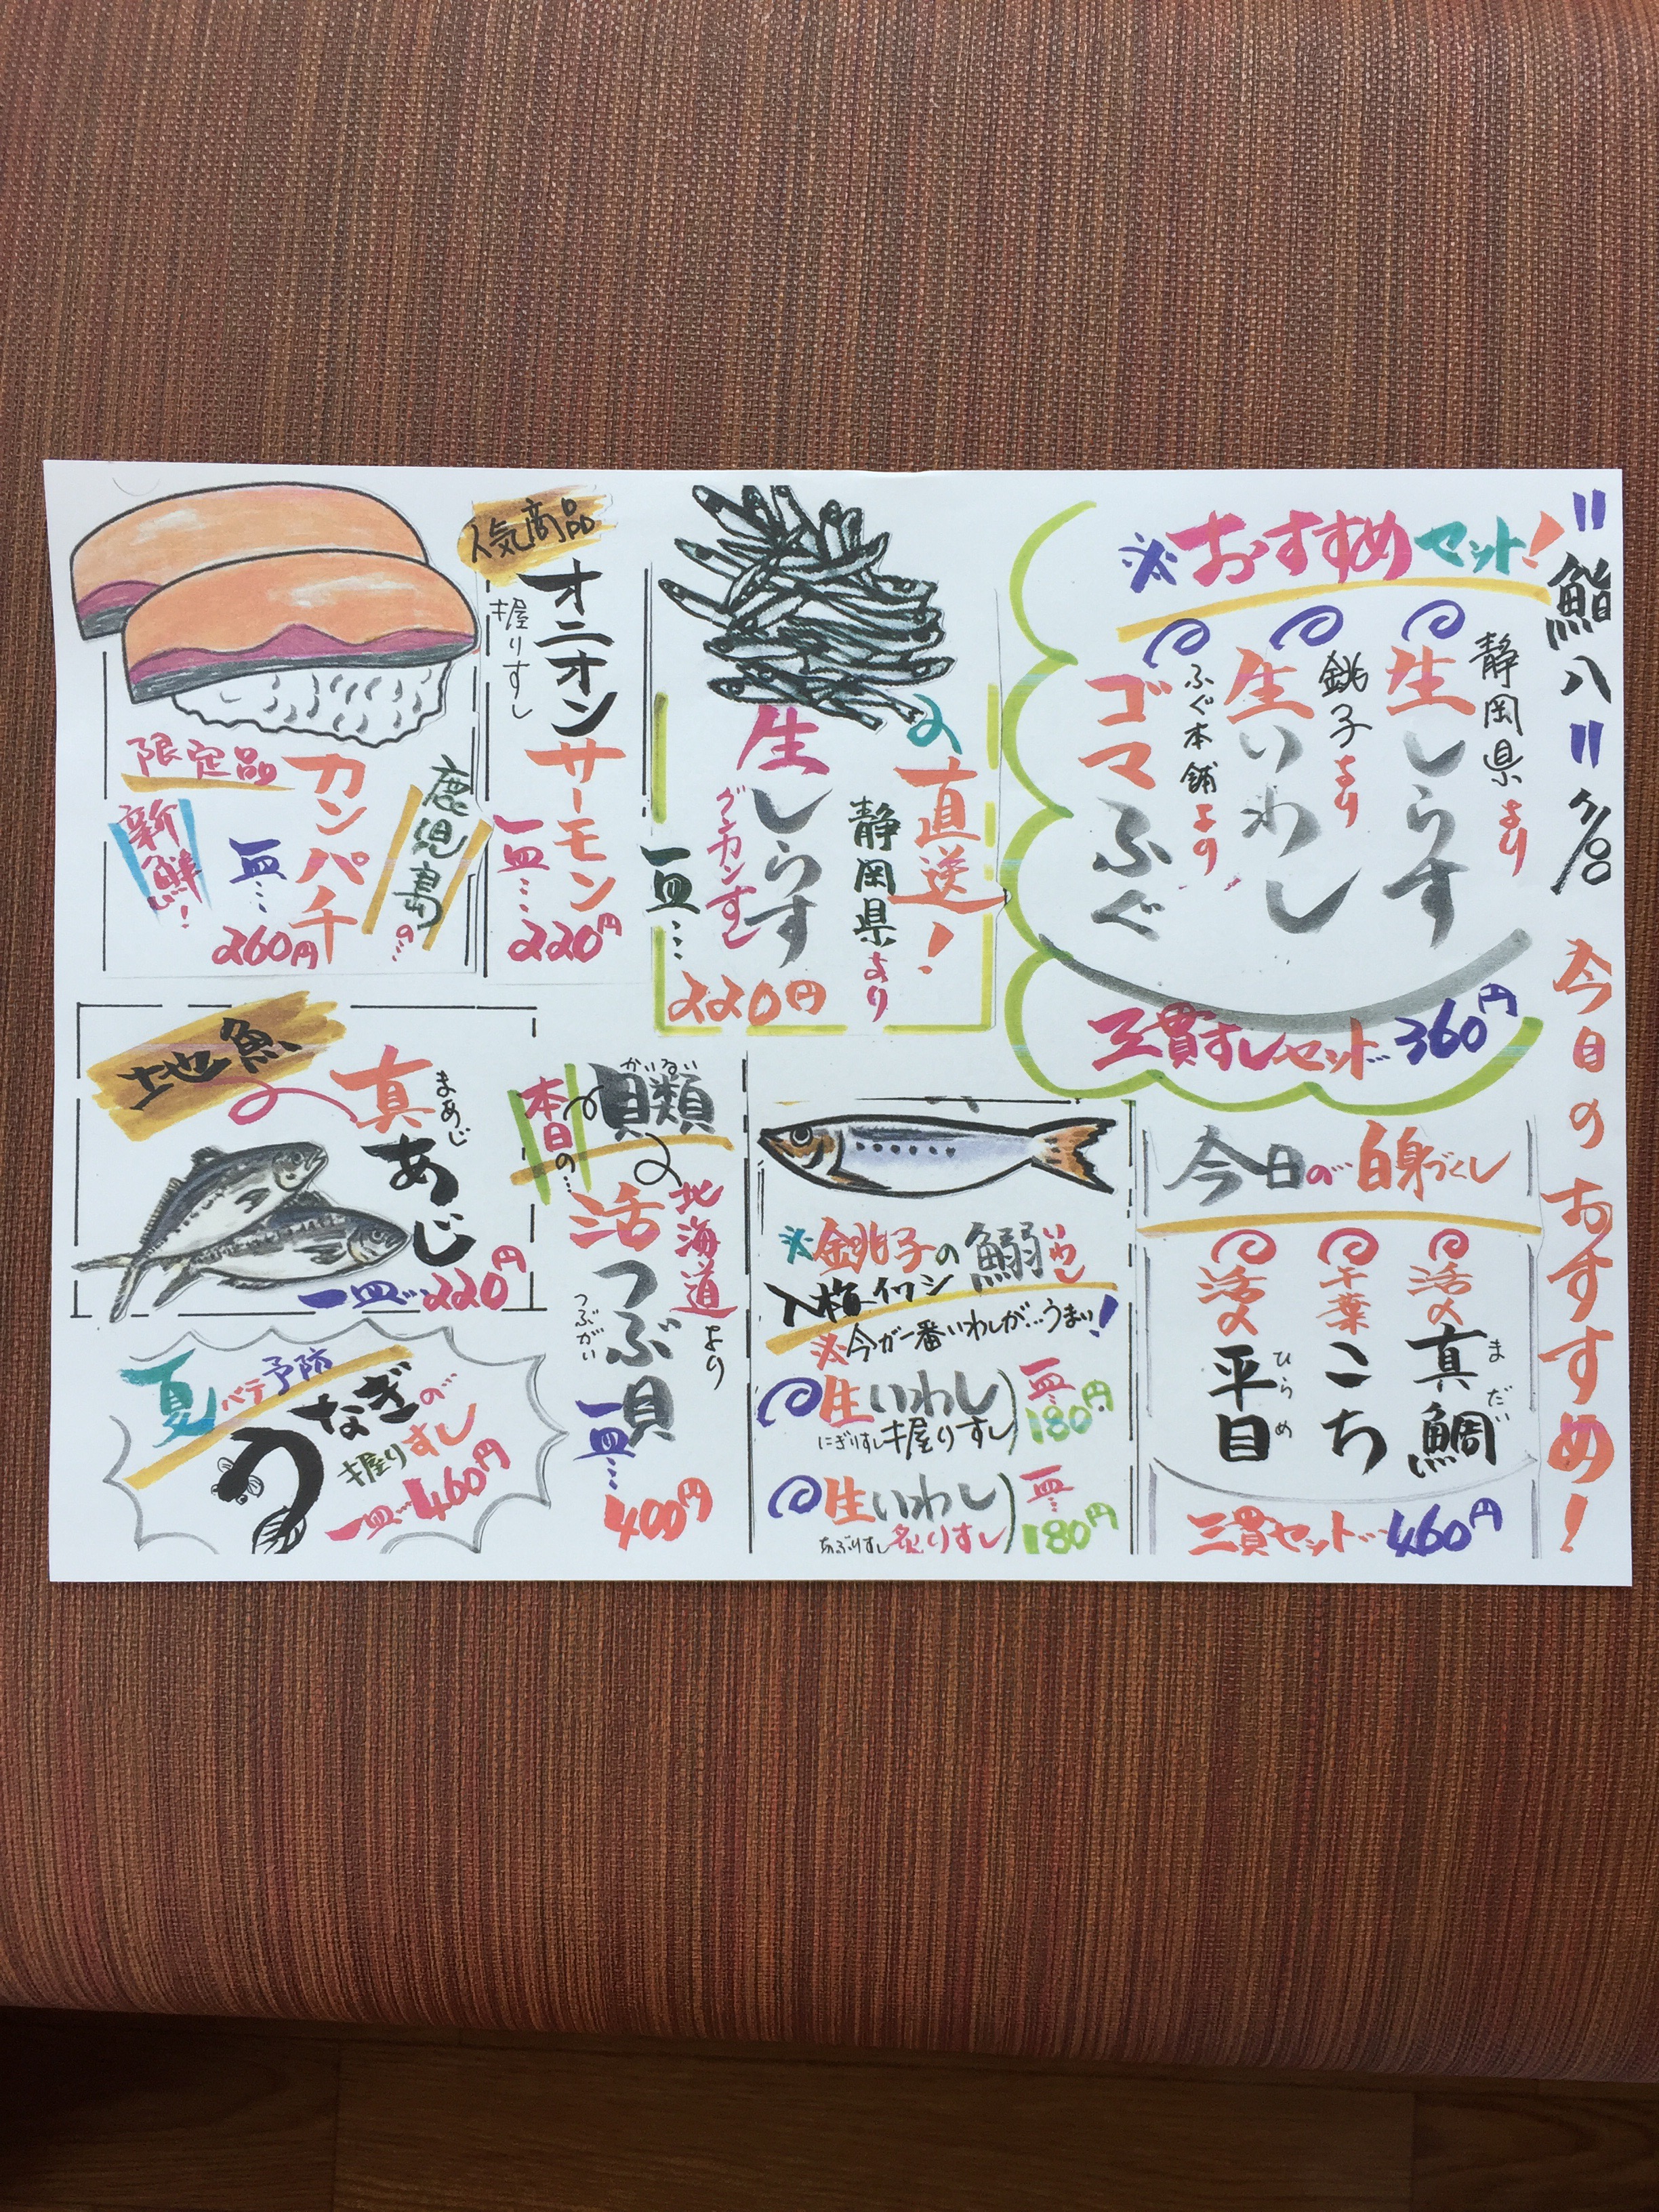 〃鮨八〃
今日のおすすめ!
※おすすめセット!
静岡県より
生しらす
銚子より
生いわし
ふぐ本舗より
ゴマふぐ
三貫すしセット…360円
直送!
静岡県より
生しらす
グンカンすし
一皿…
220円
人気商品
オニオン
サーモン
握りすし
一皿…
220円
鹿児島の…
カンパチ
限定品
新鮮!
一皿…
260円
今日の…白身づくし
活〆
真鯛
まだい
千葉
こち
活〆
平目
ひらめ
三貫セット…460円
※銚子の鰯いわし
入梅イワシ
※今が一番いわしが…うまい!
生いわし
にぎりすし握りすし
一皿…
180円
生いわし
あぶりすし炙りすし
一皿…
180円
本日の…
貝類
かいるい
北海道より
活つぶ貝
つぶがい
一皿…
400円
地魚
真あじ
まあじ
一皿…220円
夏バテ予防
うなぎの…
握りすし
一皿…460円